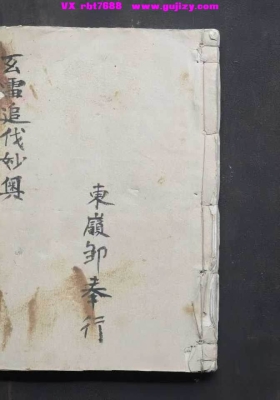 VX rbt7688 www.gujizy.com
玄雷追伐妙奥
東嶺邹奉行